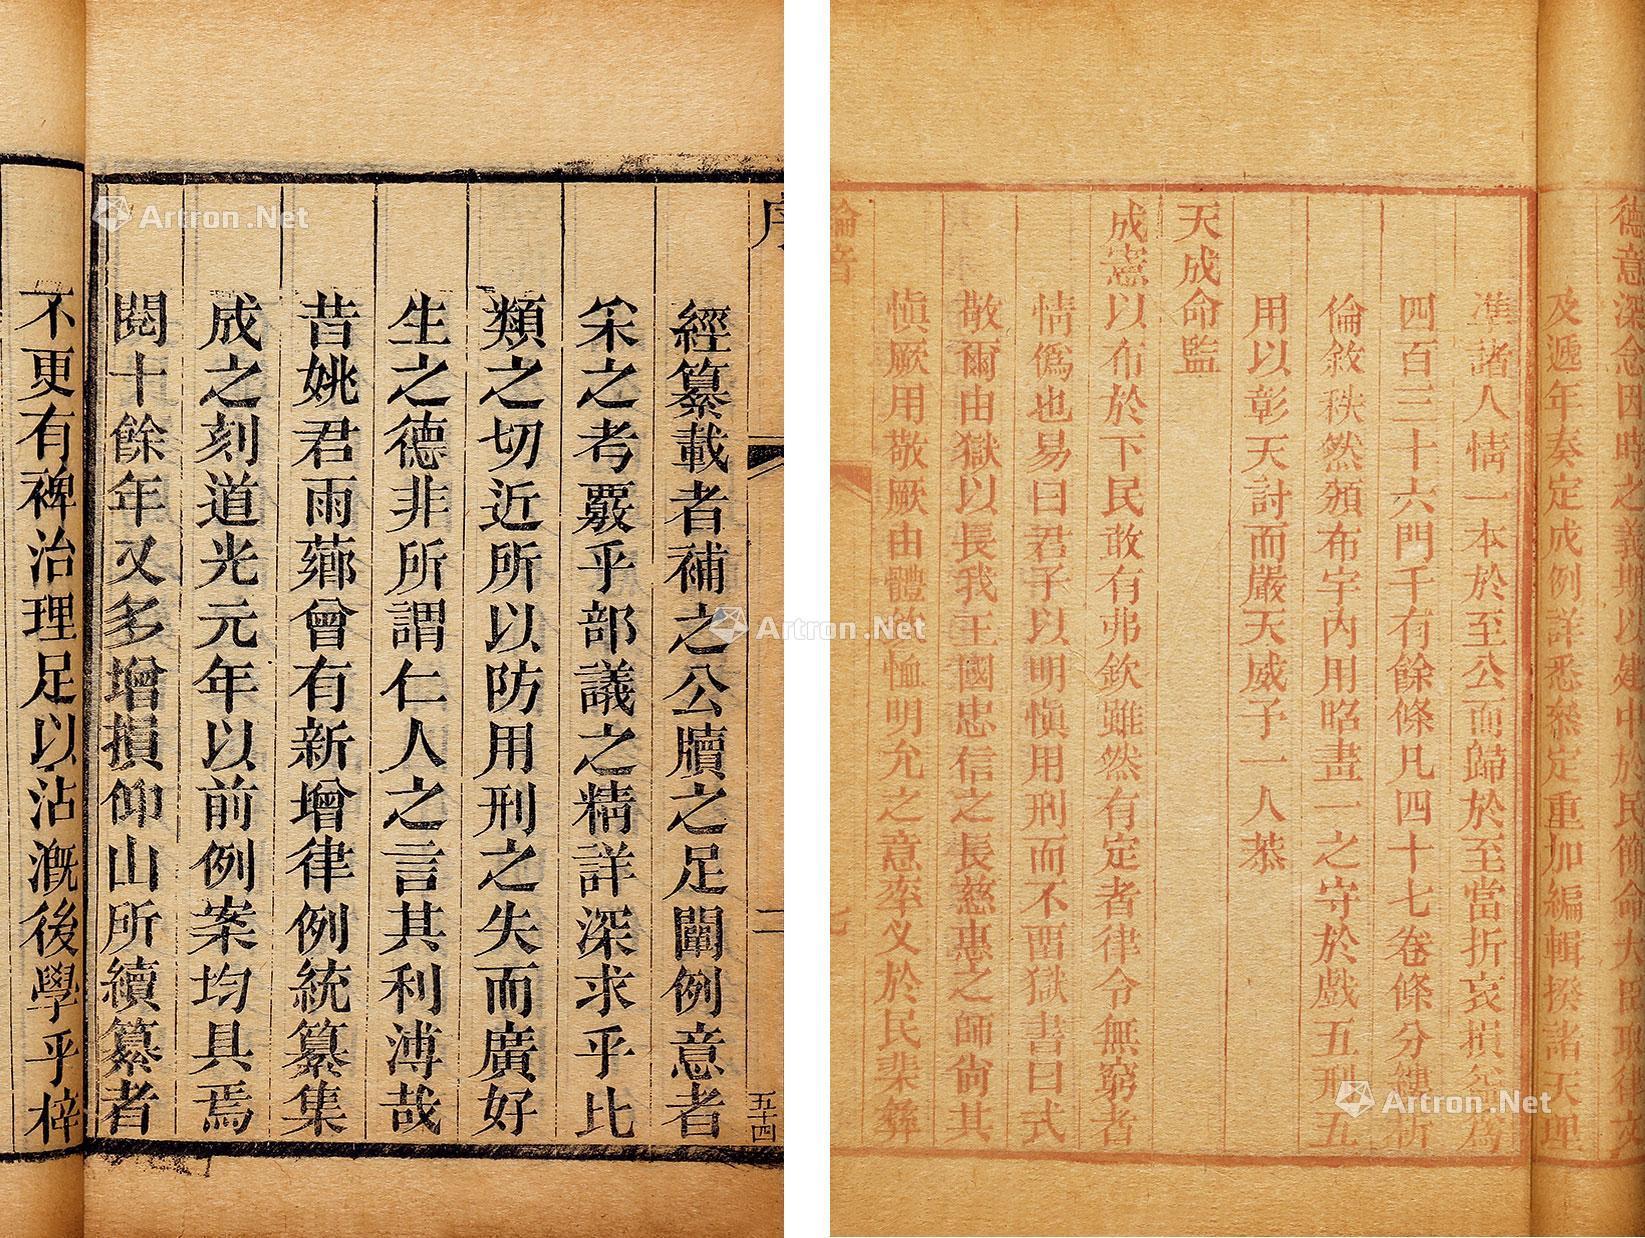 序
經纂載者補之公牘之足闡例意者
采之考覈乎部議之精詳深求乎比
類之切近所以防用刑之失而廣好
生之德非所謂仁人之言其利溥哉
昔姚君雨薌曾有新增律例統纂集
成之刻道光元年以前例案均具焉
閱十餘年又多增損仰山所續纂者
不更有裨治理足以沾溉後學乎梓
二
五十四
德意深念因時之義期以建中於民簡命大臣取律文
及遞年奏定成例詳悉叅定重加編輯揆諸天理
準諸人情一本於至公而歸於至當折衷損益爲
四百三十六門千有餘條凡四十七卷條分縷析
倫敘秩然頒布宇內用昭畫一之守於戲五刑五
用以彰天討而嚴天威予一人恭
天成命監
成憲以布於下民敢有弗欽雖然有定者律令無窮者
情僞也易曰君子以明愼用刑而不畱獄書曰式
敬爾由獄以長我王國忠信之長慈惠之師尙其
愼厥用敬厥由體欽恤明允之意率乂於民棐彝
七
Artron.Net
Artron.Net
Artron.Net